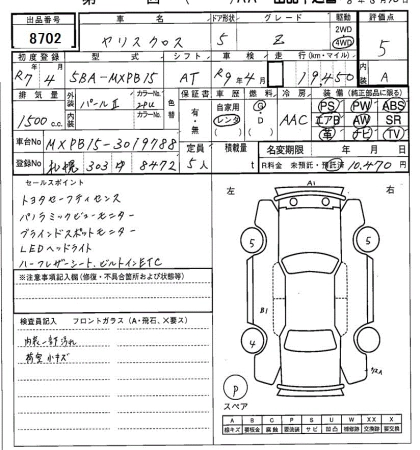 出品番号 車名 ドア形状 グレード 駆動 評価点
8702 ヤリスクロス 5 Z 2WD 4WD 5
初度登録 型式 シフト 車検 走行(km・マイル) 内装
R7年4月 5BA-MXPB15 AT R9年4月 19,450 A
排気量 外装 パールⅡ カラーNo. 2PU 色替 保証書 車歴 燃料 冷房 装備(純正部品に限る)
1500c.c. 内装 カラーNo. 有・無 自家用 レンタ G D AAC PS PW ABS
エアB AW SR
革 ナビ TV
車台No MXPB15-3019788 定員 積載量 名変期限 年 月 日
登録No 札幌 303 8472 5人 t R料金 未預託・預託済 10,470円
セールスポイント
トヨタセーフティセンス
パノラミックビューモニター
ブラインドスポットモニター
LEDヘッドライト
ハーフレザーシート、ビルトインETC
※注意事項記入欄(修復・不具合箇所および状態等)
検査員記入 フロントガラス(A・飛石、X要ス)
内装一部汚れ
荷室小キズ
左 A1 右
5 5
B1
4
P
スペア
A B C P S U W XX X
線キズ 要板金 腐蝕 要塗装 サビ 凹凸 補修跡 交換済 要交換